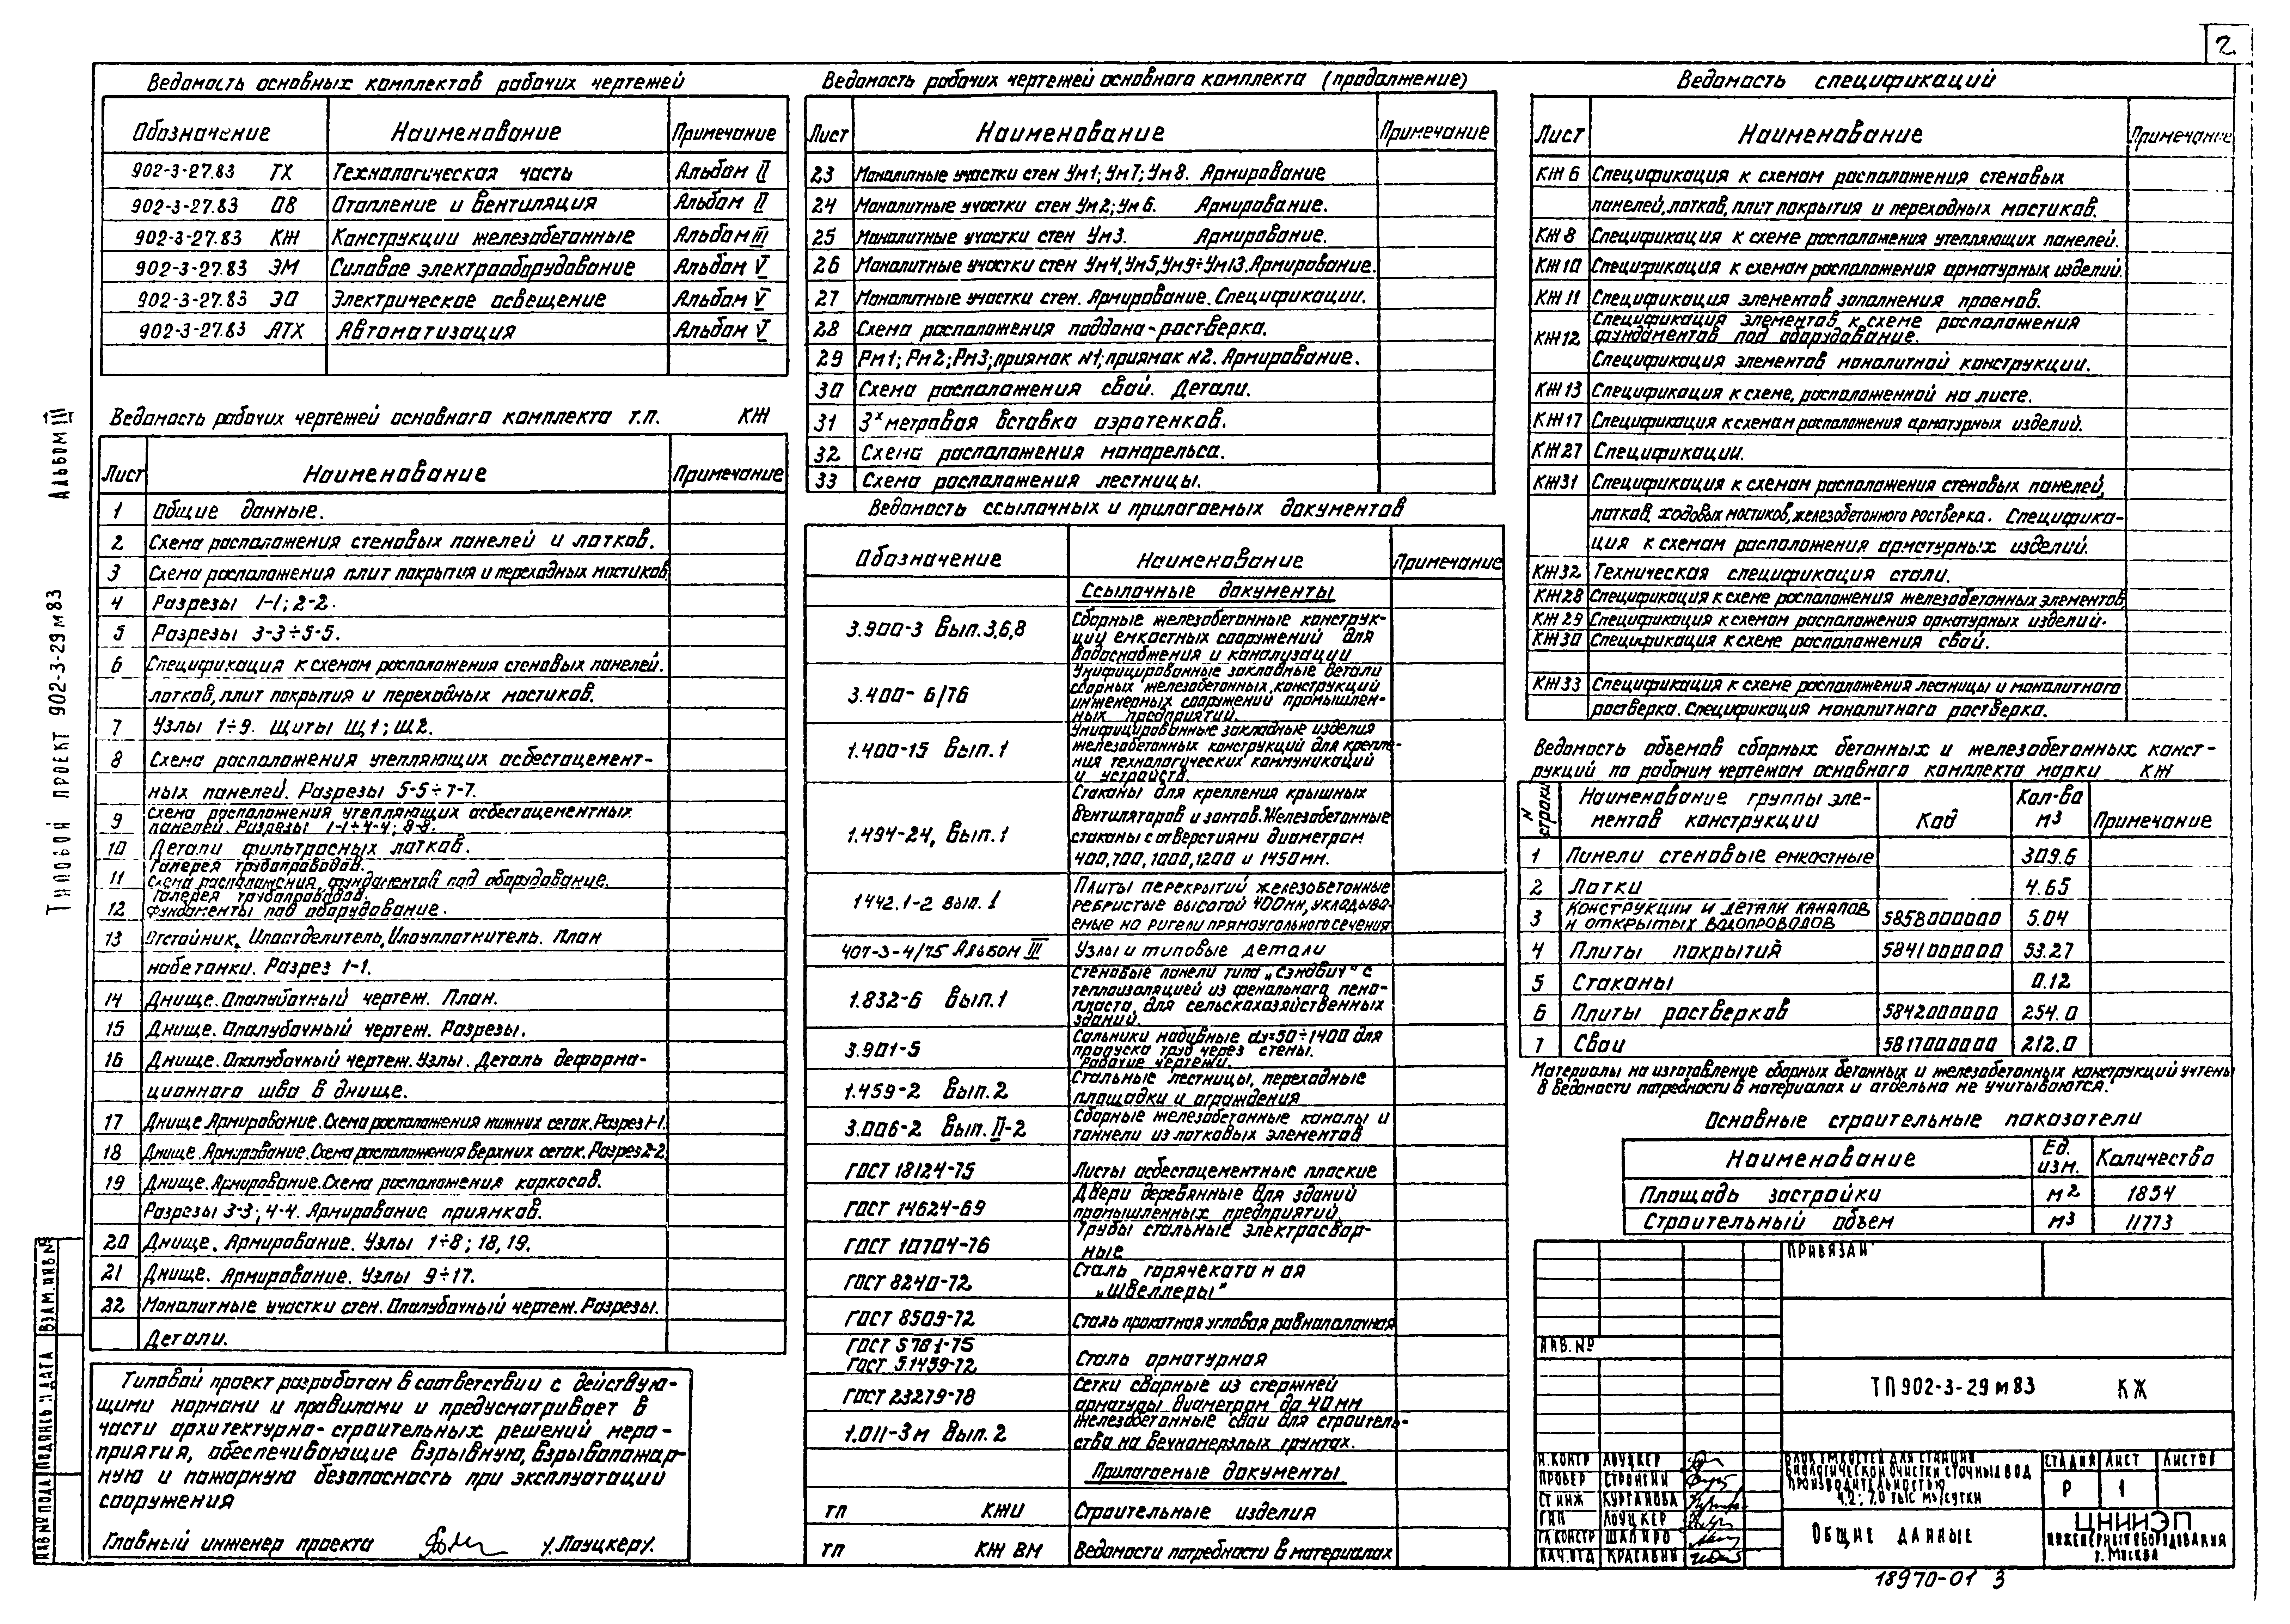 2.
Ведомость основных комплектов рабочих чертежей
Обозначение Наименование Примечание
902-3-27.83 ТХ Технологическая часть Альбом II
902-3-27.83 ОВ Отопление и вентиляция Альбом II
902-3-27.83 КЖ Конструкции железобетонные Альбом III
902-3-27.83 ЭМ Силовое электрооборудование Альбом V
902-3-27.83 ЭО Электрическое освещение Альбом V
902-3-27.83 АТХ Автоматизация Альбом V
Ведомость рабочих чертежей основного комплекта т.п. КЖ
Лист Наименование Примечание
1 Общие данные.
2 Схема расположения стеновых панелей и лотков.
3 Схема расположения плит покрытия и переходных мостиков
4 Разрезы 1-1; 2-2.
5 Разрезы 3-3÷5-5.
6 Спецификация к схемам расположения стеновых панелей.
лотков, плит покрытия и переходных мостиков.
7 Узлы 1÷9. Щиты Щ1; Щ2.
8 Схема расположения утепляющих асбестоцемент-
ных панелей. Разрезы 5-5÷7-7.
9 Схема расположения утепляющих асбестоцементных
панелей. Разрезы 1-1÷4-4; 8-8.
10 Детали фильтросных лотков.
11 Галерея трубопроводов.
Схема расположения фундаментов под оборудование.
12 Галерея трубопроводов.
Фундаменты под оборудование.
13 Отстойник, Илоотделитель, Илоуплотнитель. План
набетонки. Разрез 1-1.
14 Днище. Опалубочный чертеж. План.
15 Днище. Опалубочный чертеж. Разрезы.
16 Днище. Опалубочный чертеж. Узлы. Деталь деформа-
ционного шва в днище.
17 Днище Армирование. Схема расположения нижних сеток. Разрез 1-1.
18 Днище. Армирование. Схема расположения верхних сеток. Разрез 2-2
19 Днище. Армирование. Схема расположения каркасов.
Разрезы 3-3; 4-4. Армирование приямков.
20 Днище. Армирование. Узлы 1÷8; 18, 19.
21 Днище. Армирование. Узлы 9÷17.
22 Монолитные участки стен. Опалубочный чертеж. Разрезы.
Детали.
Типовой проект разработан в соответствии с действую-
щими нормами и правилами и предусматривает в
части архитектурно-строительных решений меро-
приятия, обеспечивающие взрывную, взрывопожар-
ную и пожарную безопасность при эксплуатации
сооружения
Главный инженер проекта /.Лоуцкер/.
Ведомость рабочих чертежей основного комплекта (продолжение)
Лист Наименование Примечание
23 Монолитные участки стен Ум1; Ум7; Ум8. Армирование
24 Монолитные участки стен Ум2; Ум6. Армирование.
25 Монолитные участки стен Ум3. Армирование.
26 Монолитные участки стен Ум4, Ум5, Ум9÷Ум13. Армирование.
27 Монолитные участки стен. Армирование. Спецификации.
28 Схема расположения поддона-ростверка.
29 Рм1; Рм2; Рм3; приямок N1; приямок N2. Армирование.
30 Схема расположения свай. Детали.
31 3х метровая вставка аэротенков.
32 Схема расположения монорельса.
33 Схема расположения лестницы.
Ведомость ссылочных и прилагаемых документов
Обозначение Наименование Примечание
Ссылочные документы
3.900-3 Вып. 3,6,8 Сборные железобетонные конструк-
ции емкостных сооружений для
водоснабжения и канализации
3.400-6/76 Унифицированные закладные детали
сборных железобетонных конструкций
инженерных сооружений промышлен-
ных предприятий.
1.400-15 Вып. 1 Унифицированные закладные изделия
железобетонных конструкций для крепле-
ния технологических коммуникаций
и устройств.
1.494-24, Вып. 1 Стаканы для крепления крышных
вентиляторов и зонтов. Железобетонные
стаканы с отверстиями диаметром
400, 700, 1000, 1200 и 1450мм.
1442.1-2 вып. 1 Плиты перекрытий железобетонные
ребристые высотой 400мм, укладыва-
емые на ригели прямоугольного сечения
407-3-4/75 Альбом III Узлы и типовые детали
1.832-6 Вып. 1 Стеновые панели типа „Сэндвич“ с
теплоизоляцией из фенольного пено-
пласта, для сельскохозяйственных
зданий.
3.901-5 Сальники набивные dу=50÷1400 для
пропуска труб через стены.
Рабочие чертежи.
1.459-2 Вып. 2 Стальные лестницы, переходные
площадки и ограждения
3.006-2 Вып. II-2 Сборные железобетонные каналы и
тоннели из лотковых элементов
ГОСТ 18124-75 Листы асбестоцементные плоские
ГОСТ 14624-69 Двери деревянные для зданий
промышленных предприятий.
ГОСТ 10704-76 Трубы стальные электросвар-
ные
ГОСТ 8240-72 Сталь горячекатаная
„Швеллеры“
ГОСТ 8509-72 Сталь прокатная угловая равнополочная
ГОСТ 5781-75
ГОСТ 5.1459-72 Сталь арматурная
ГОСТ 23279-78 Сетки сварные из стержней
арматуры диаметром до 40мм
1.011-3м Вып. 2 Железобетонные сваи для строитель-
ства на вечномерзлых грунтах.
Прилагаемые документы
ТП КЖИ Строительные изделия
ТП КЖ ВМ Ведомости потребности в материалах
Ведомость спецификаций
Лист Наименование Примечание
КЖ6 Спецификация к схемам расположения стеновых
панелей, лотков, плит покрытия и переходных мостиков.
КЖ8 Спецификация к схеме расположения утепляющих панелей.
КЖ10 Спецификация к схемам расположения арматурных изделий.
КЖ11 Спецификация элементов заполнения проемов.
КЖ12 Спецификация элементов к схеме расположения
фундаментов под оборудование.
Спецификация элементов монолитной конструкции.
КЖ13 Спецификация к схеме, расположенной на листе.
КЖ17 Спецификация к схемам расположения арматурных изделий.
КЖ27 Спецификации.
КЖ31 Спецификация к схемам расположения стеновых панелей,
лотков, ходовых мостиков, железобетонного ростверка. Специфика-
ция к схемам расположения арматурных изделий.
КЖ32 Техническая спецификация стали.
КЖ28 Спецификация к схеме расположения железобетонных элементов
КЖ29 Спецификация к схемам расположения арматурных изделий.
КЖ30 Спецификация к схеме расположения свай.
КЖ33 Спецификация к схеме расположения лестницы и монолитного
ростверка. Спецификация монолитного ростверка.
Ведомость объемов сборных бетонных и железобетонных конст-
рукций по рабочим чертежам основного комплекта марки КЖ
N строки Наименование группы эле-
ментов конструкции Код Кол-во м3 Примечание
1 Панели стеновые емкостные 309.6
2 Лотки 4.65
3 Конструкции и детали каналов
и открытых водопроводов 5858000000 5.04
4 Плиты покрытий 5841000000 53.27
5 Стаканы 0.12
6 Плиты ростверков 5842000000 254.0
7 Сваи 5817000000 212.0
Материалы на изготовление сборных бетонных и железобетонных конструкций учтены
в ведомости потребности в материалах и отдельно не учитываются.
Основные строительные показатели
Наименование Ед. изм. Количества
Площадь застройки м2 1854
Строительный объем м3 11773
Привязан
Инв. №
ТП 902-3-29м83 КЖ
Н.контр Лоуцкер
Провер Стронгин
Ст инж Курганова
ГИП Лоуцкер
Гл констр Шапиро
Нач.отд Красавин
Блок емкостей для станции
биологической очистки сточных вод
производительностью
4,2; 7,0 тыс м3/сутки
Стадия Лист Листов
Р 1
Общие данные
ЦНИИЭП
инженерного оборудования
г. Москва
18970-01 3
Типовой проект 902-3-29м83 Альбом III
Инв № подл Подпись и дата Взам. инв №